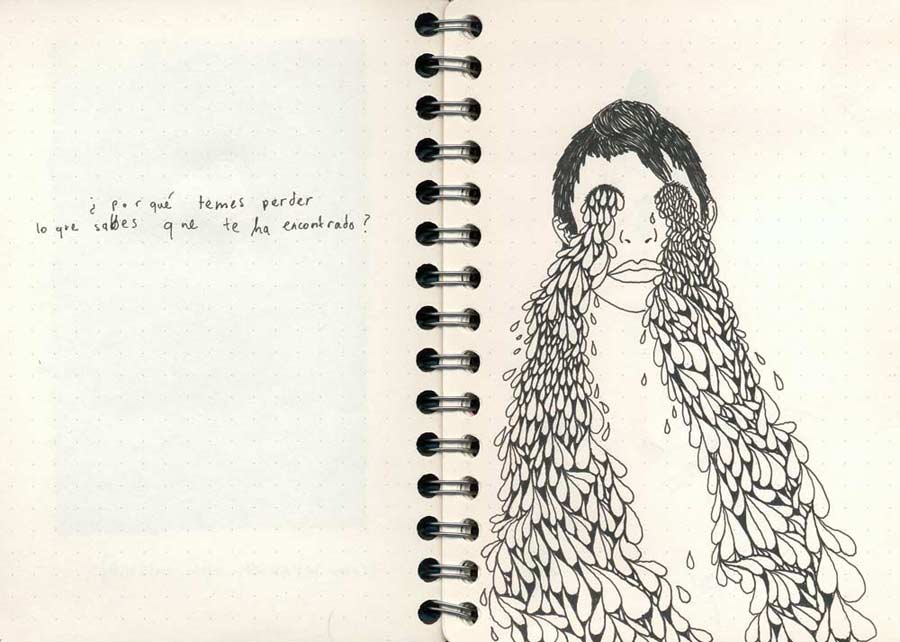 ¿ por qué temes perder
lo que sabes que te ha encontrado?